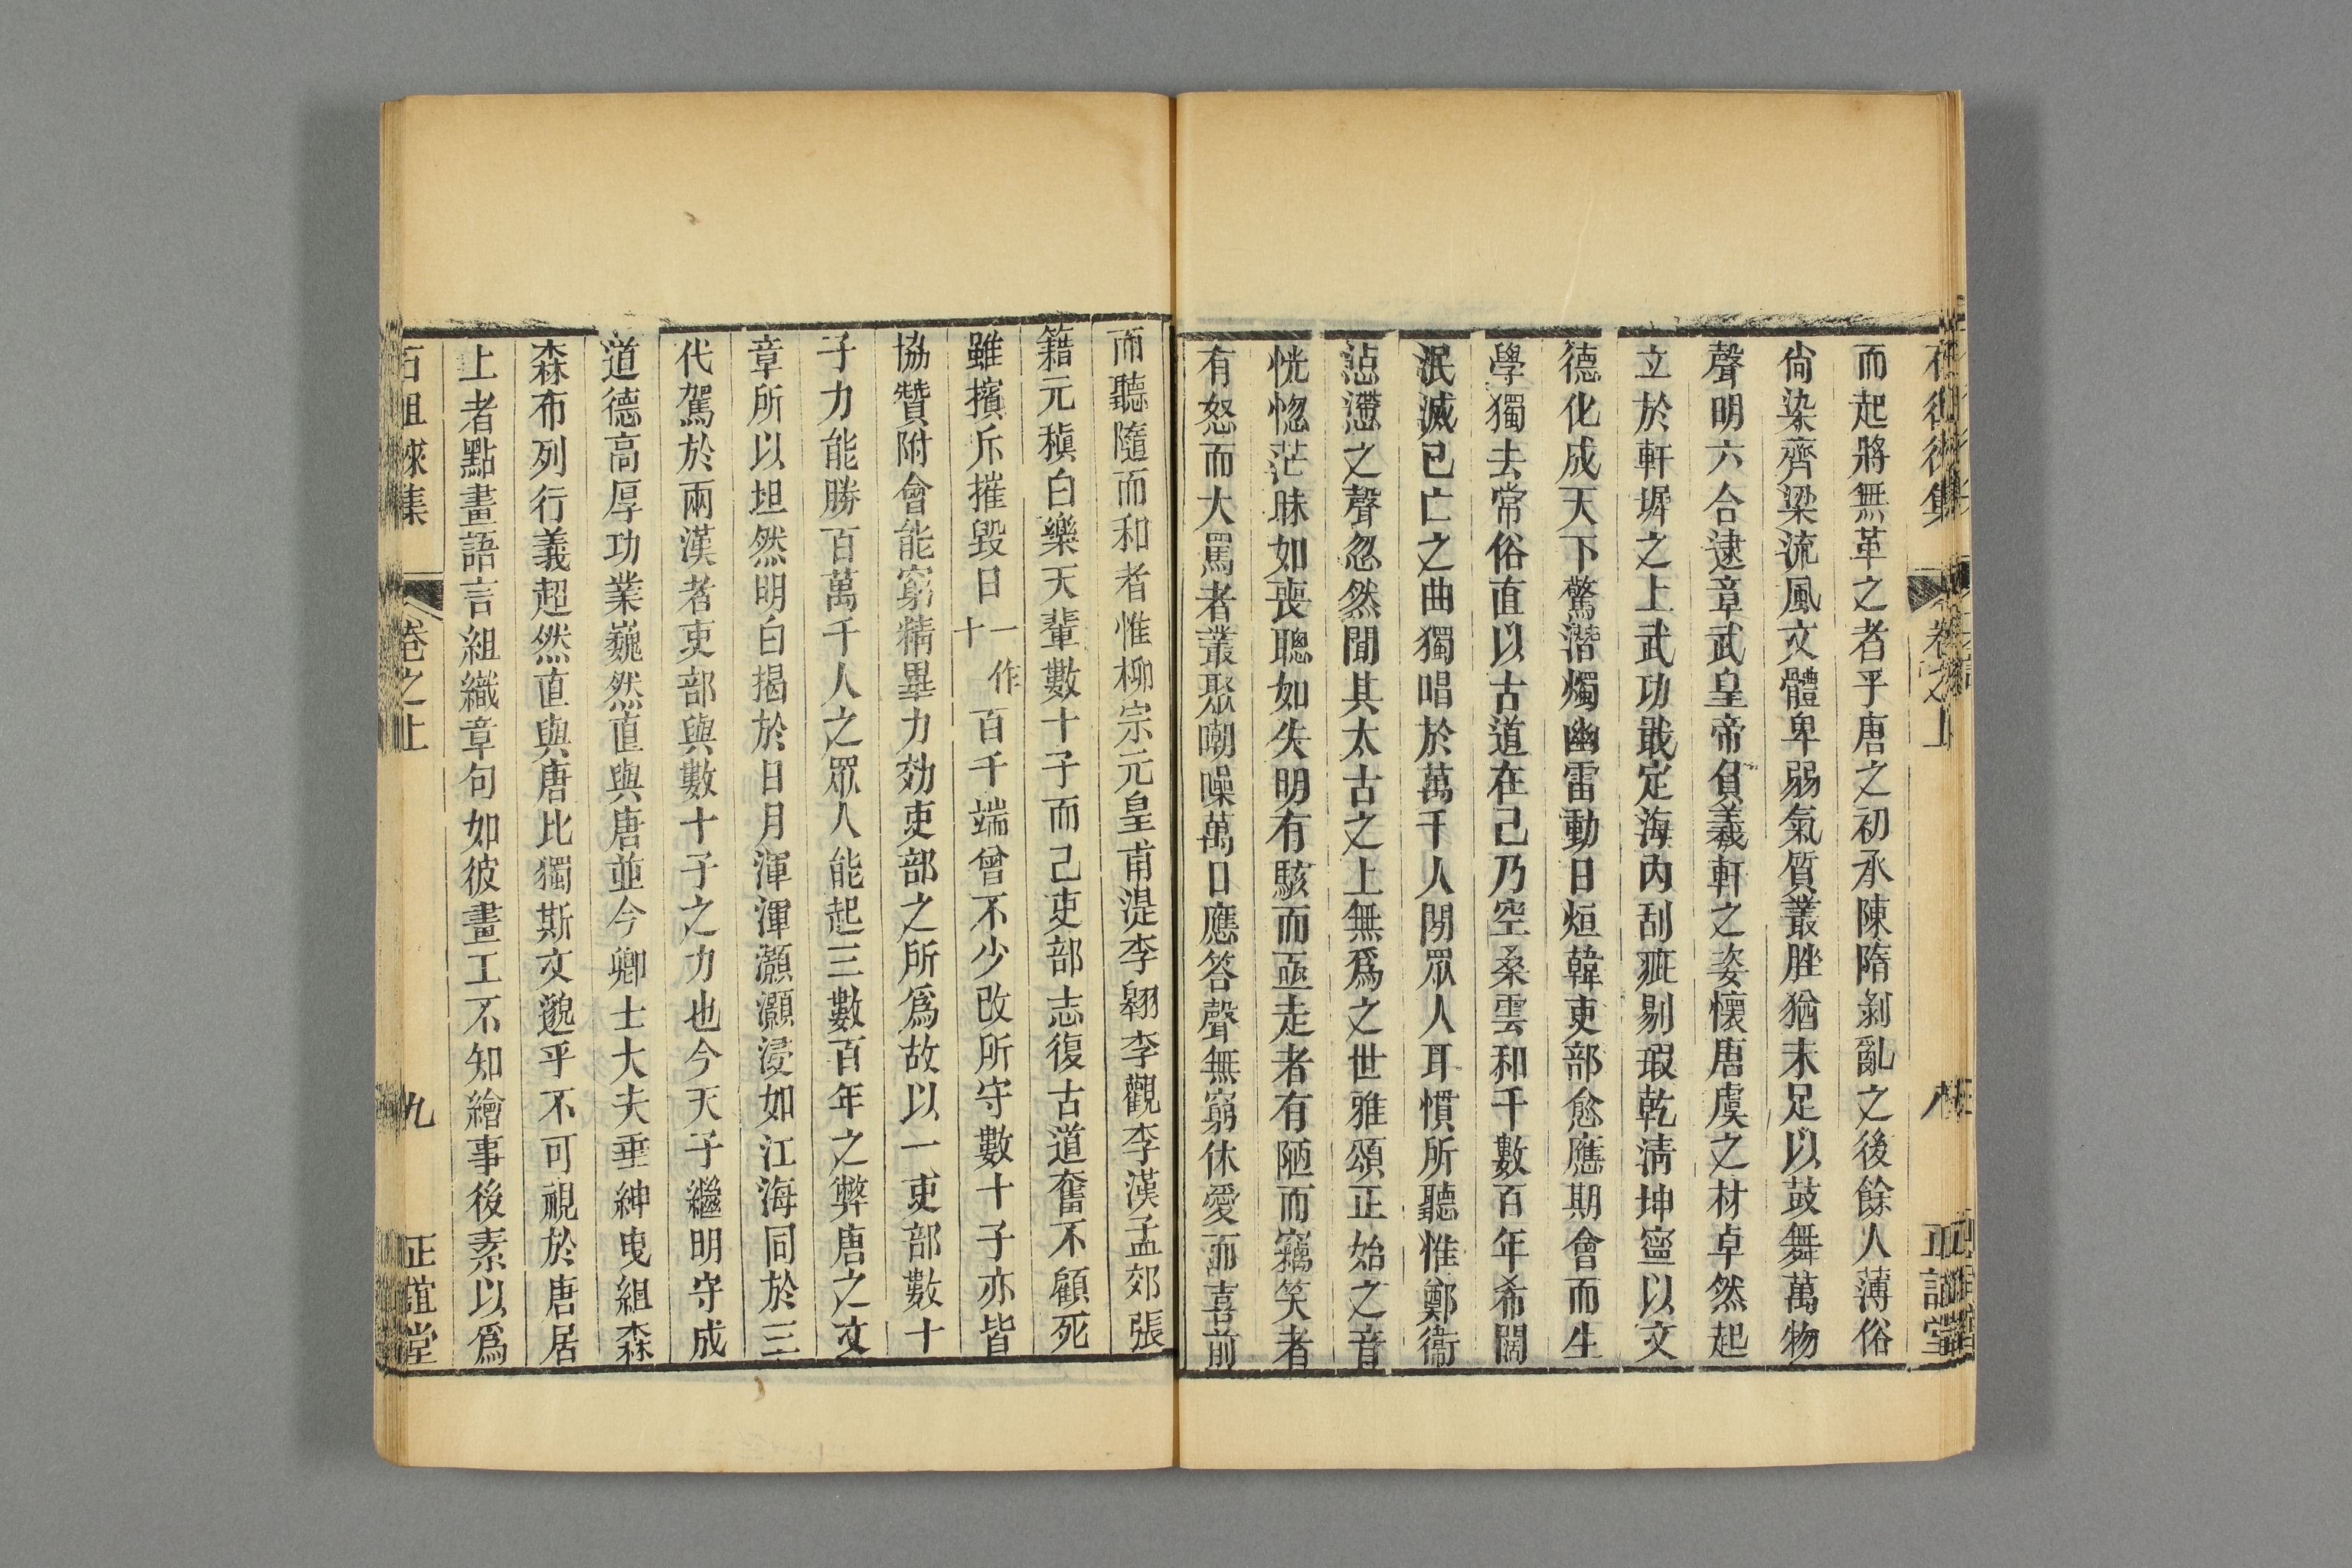 而起將無革之者乎唐之初承陳隋剝亂之後餘人薄俗
尙染齊梁流風文體卑弱氣質叢脞猶未足以鼓舞萬物
聲明六合逮章武皇帝負羲軒之姿懷唐虞之材卓然起
立於軒墀之上武功戢定海內刮疵剔瑕乾淸坤寧以文
德化成天下驚潛燭幽雷動日烜韓吏部愈應期會而生
學獨去常俗直以古道在己乃空桑雲和千數百年希闊
泯滅已亡之曲獨唱於萬千人閒眾人耳慣所聽惟鄭衞
惉懘之聲忽然聞其太古之上無爲之世雅頌正始之音
恍惚茫昧如喪聰如失明有駭而亟走者有陋而竊笑者
有怒而大罵者叢聚嘲噪萬口應答聲無窮休愛而喜前
而聽隨而和者惟柳宗元皇甫湜李翶李觀李漢孟郊張
籍元稹白樂天輩數十子而己吏部志復古道奮不顧死
雖擯斥摧毀日一作十百千端曾不少改所守數十子亦皆
協贊附會能窮精畢力効吏部之所爲故以一吏部數十
子力能勝百萬千人之眾人能起三數百年之弊唐之文
章所以坦然明白揭於日月渾渾灝灝浸如江海同於三
代駕於兩漢者吏部與數十子之力也今天子繼明守成
道德高厚功業巍然直與唐並今卿士大夫垂紳曳組森
森布列行義超然直與唐比獨斯文邈乎不可視於唐居
上者點畫語言組織章句如彼畫工不知繪事後素以爲
石徂徠集 卷之上 九 正誼堂